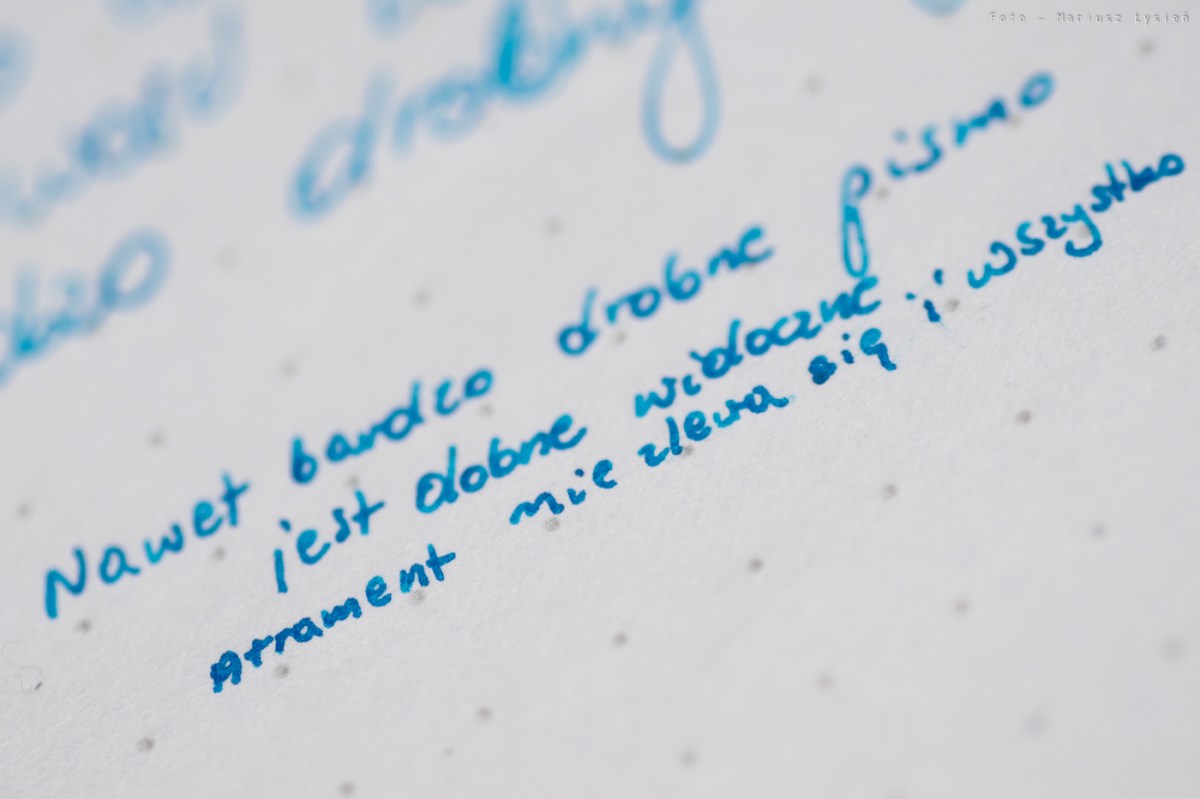 Foto - Mariusz Łysień
drobny
Nawet bardzo drobne pismo
jest dobrze widoczne i wszystko
Atrament nie zlewa się